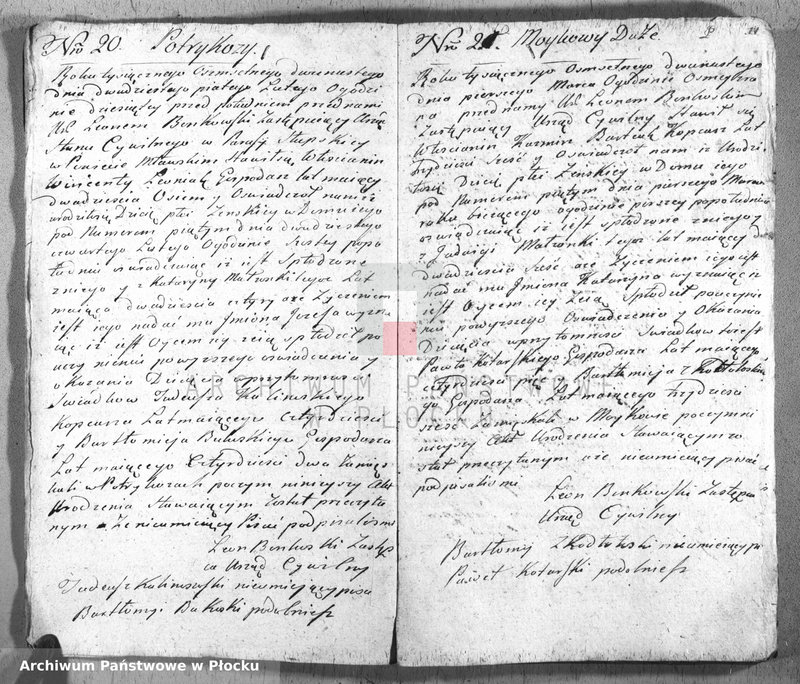 Nro 20. Potrykozy.
Roku tysiącznego Osmsetnego dwunastego
dnia dwudziestego piątego Lutego Ogodzi
nie dziesiątey przed południem przed nami
Leonem Binkowski Zastępuiący Urząd
Stanu Cywilnego w Parafij
w Powiecie Mławskim Stawił się Włościanin
Wincenty Gospodarz lat maiący
dwadziescia Osiem y Oswiadczył nam iż
urodziło się Dziecię płci Zenskiey w Domu iego
pod Numerem piątym dnia dwudziestego
czwartego Lutego Ogodzinie Szostey popo
łudniu oswiadczaiąc iż iest spłodzone
z niego y z Kataryny Małzonki iego Lat
maiąca dwadziescia cztyry oże Zyczeniem
iest iego nadać mu Jmiona Jozefa wyzna
iąc iż iest Oycem iey zcią spłodził po
uczynieniu powyzszego oswiadczenia y
okazania Dziecięcia wprzytomności
Swiadkow Tadeusza Kalinoskiego
Kopcarza Lat maiącego Cztyrdziesci
y Bartłomieja Gospodarza
Lat maiącego Cztyrdziesci dwa Zamięsz
kali w Potrykozach poczym ninieyszy Akt
Urodzenia Stawaiącym Został przeczyta
nym Ze nieumieiący Pisać podpisaliśmy
Leon Binkoski Zastęp
ca Urząd Cywilny
Tadeusz Kalinowski nieumieiący pisać
Bartłomy podobniesz
Nro 21. Moykowy Duże
24
Roku tysiącznego Osmsetnego dwunastego
dnia pierwszego Marca Ogodzinie Osmey Zra
na przed namy Leonem Binkoskim
Zastępuiący Urząd Cywilny Stawił się
Włościanin Kazmirz Kopcarz Lat
Sześć y Oswiadczył nam iż Urodzi
ło się Dziecię płci Zenskiey w Domu iego
pod Numerem piątym dnia pierszego Marca
roku biezącego ogodzinie pierszey popołudniu
oswiadczaiąc iż iest spłodzone z niego y
z Jadwigi Małzonki iego lat maiącey
dwadziescia Sześć oże Zyczeniem iego iest
nadać mu Jmiona Katarzyna wyznaiąc iż
iest Oycem iey Zcią Spłodził pouczynie
niu powyzszego Oswiadczenia y Okazania
Dziecięcia wprzytomności Swiadkow
Pawła Kotarskiego Gospodarza Lat maiącego
cztyrdziesci pięć y Bartłomieja
go Gospodarza Lat maiącego trzydziesci
sześć Zamięszkali w Moykowie poczym ni
nieyszy Akt Urodzenia Stawaiącym zo
stał przeczytanym oże nieumieiący pisać
podpisaliśmy
Leon Binkowski Zastępca
Urząd Cywilny
Bartłomy nieumieiący pi
Paweł Kotarski podobniesz
ARCHIWUM PAŃSTWOWE
W PŁOCKU
Archiwum Państwowe w Płocku